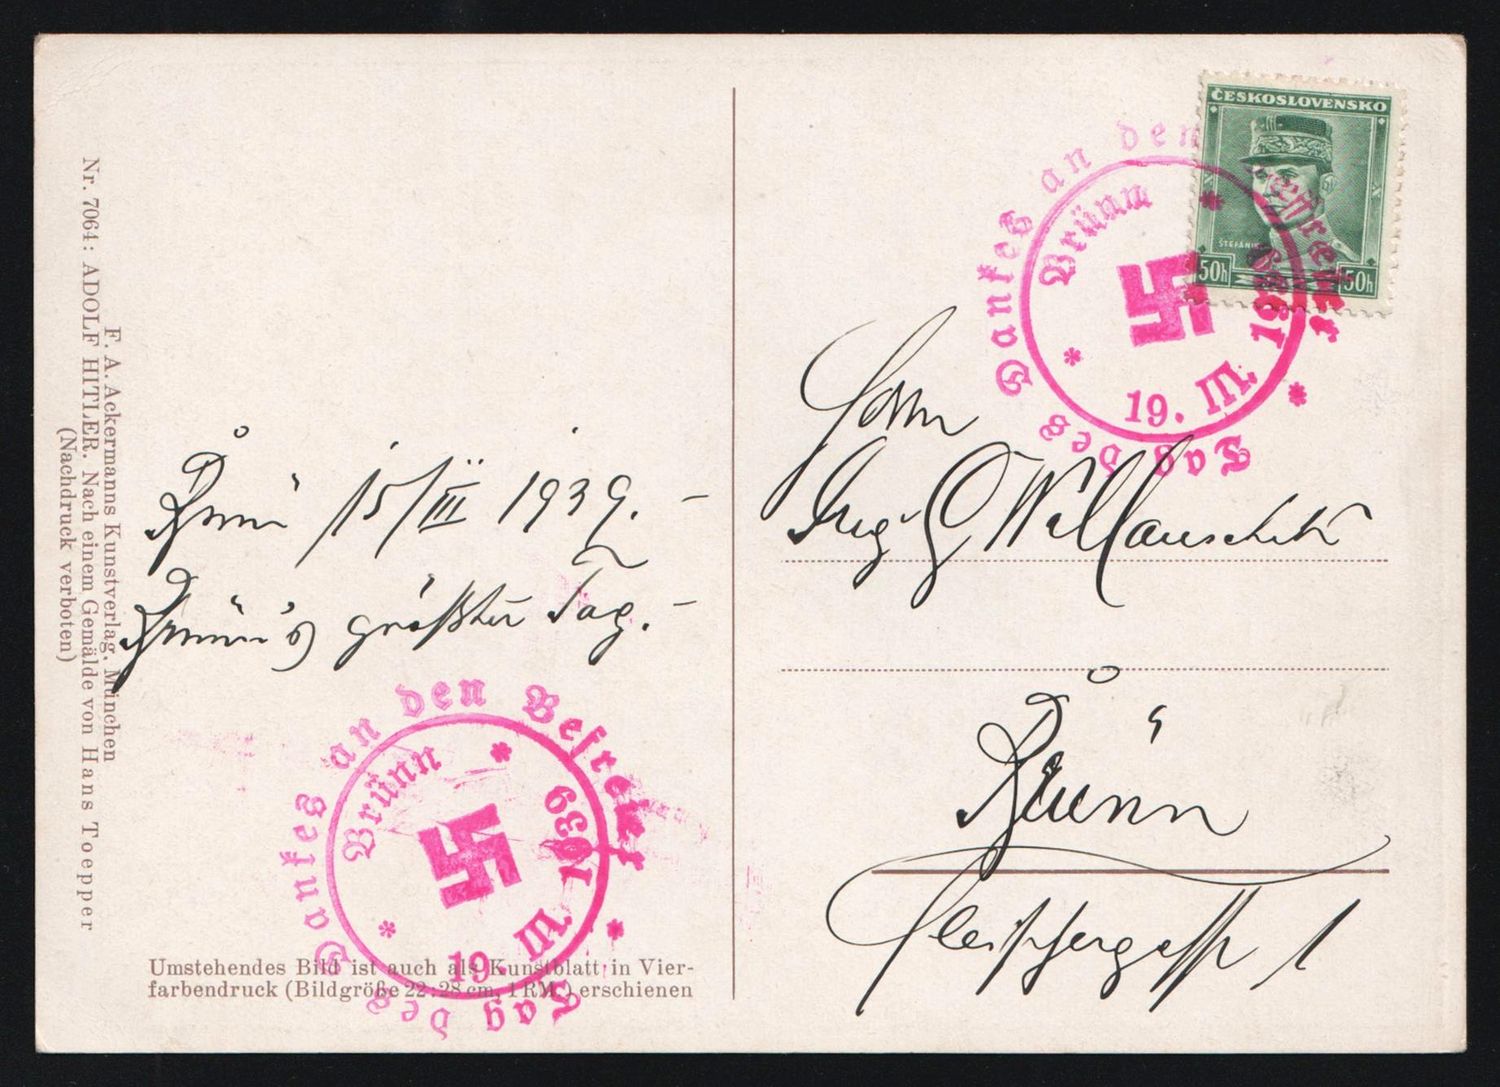 Nr. 7064: ADOLF HITLER. Nach einem Gemälde von Hans Toepper
F. A. Ackermanns Kunstverlag, München
(Nachdruck verboten)
Brünn 15/III 1939. –
Brünn's größter Tag. –
Tag des Dankes an den Befreier
Brünn
19. III. 1939
Umstehendes Bild ist auch als Kunstblatt in Vier-
farbendruck (Bildgröße 22:28 cm, 1 RM.) erschienen
ČESKOSLOVENSKO
ŠTEFÁNIK
50h 50h
Tag des Dankes an den Befreier
Brünn
19. III. 1939
Herrn
Ing. Willauschek
Brünn
1